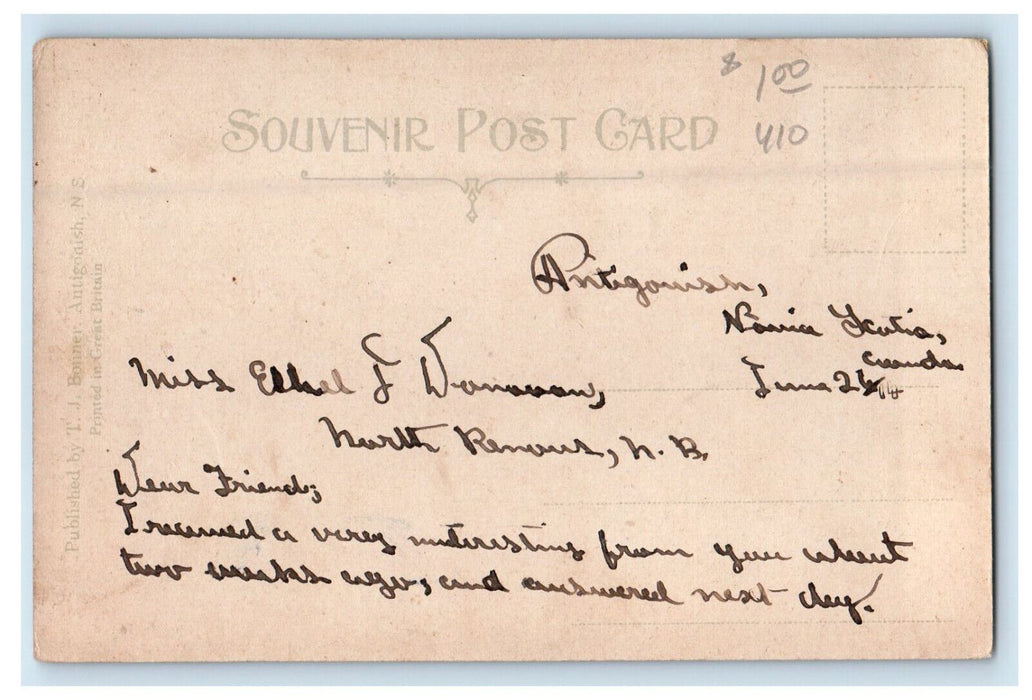 $ 1.00
SOUVENIR POST CARD
410
Published by T. J. Bonner, Antigonish, N S
Printed in Great Britain
Antigonish,
Nova Scotia,
Canada
June 26/14
Miss Ethel F Donovan,
North Renous, N. B.
Dear Friend;
I received a very interesting from you about
two weeks ago, and answered next day.